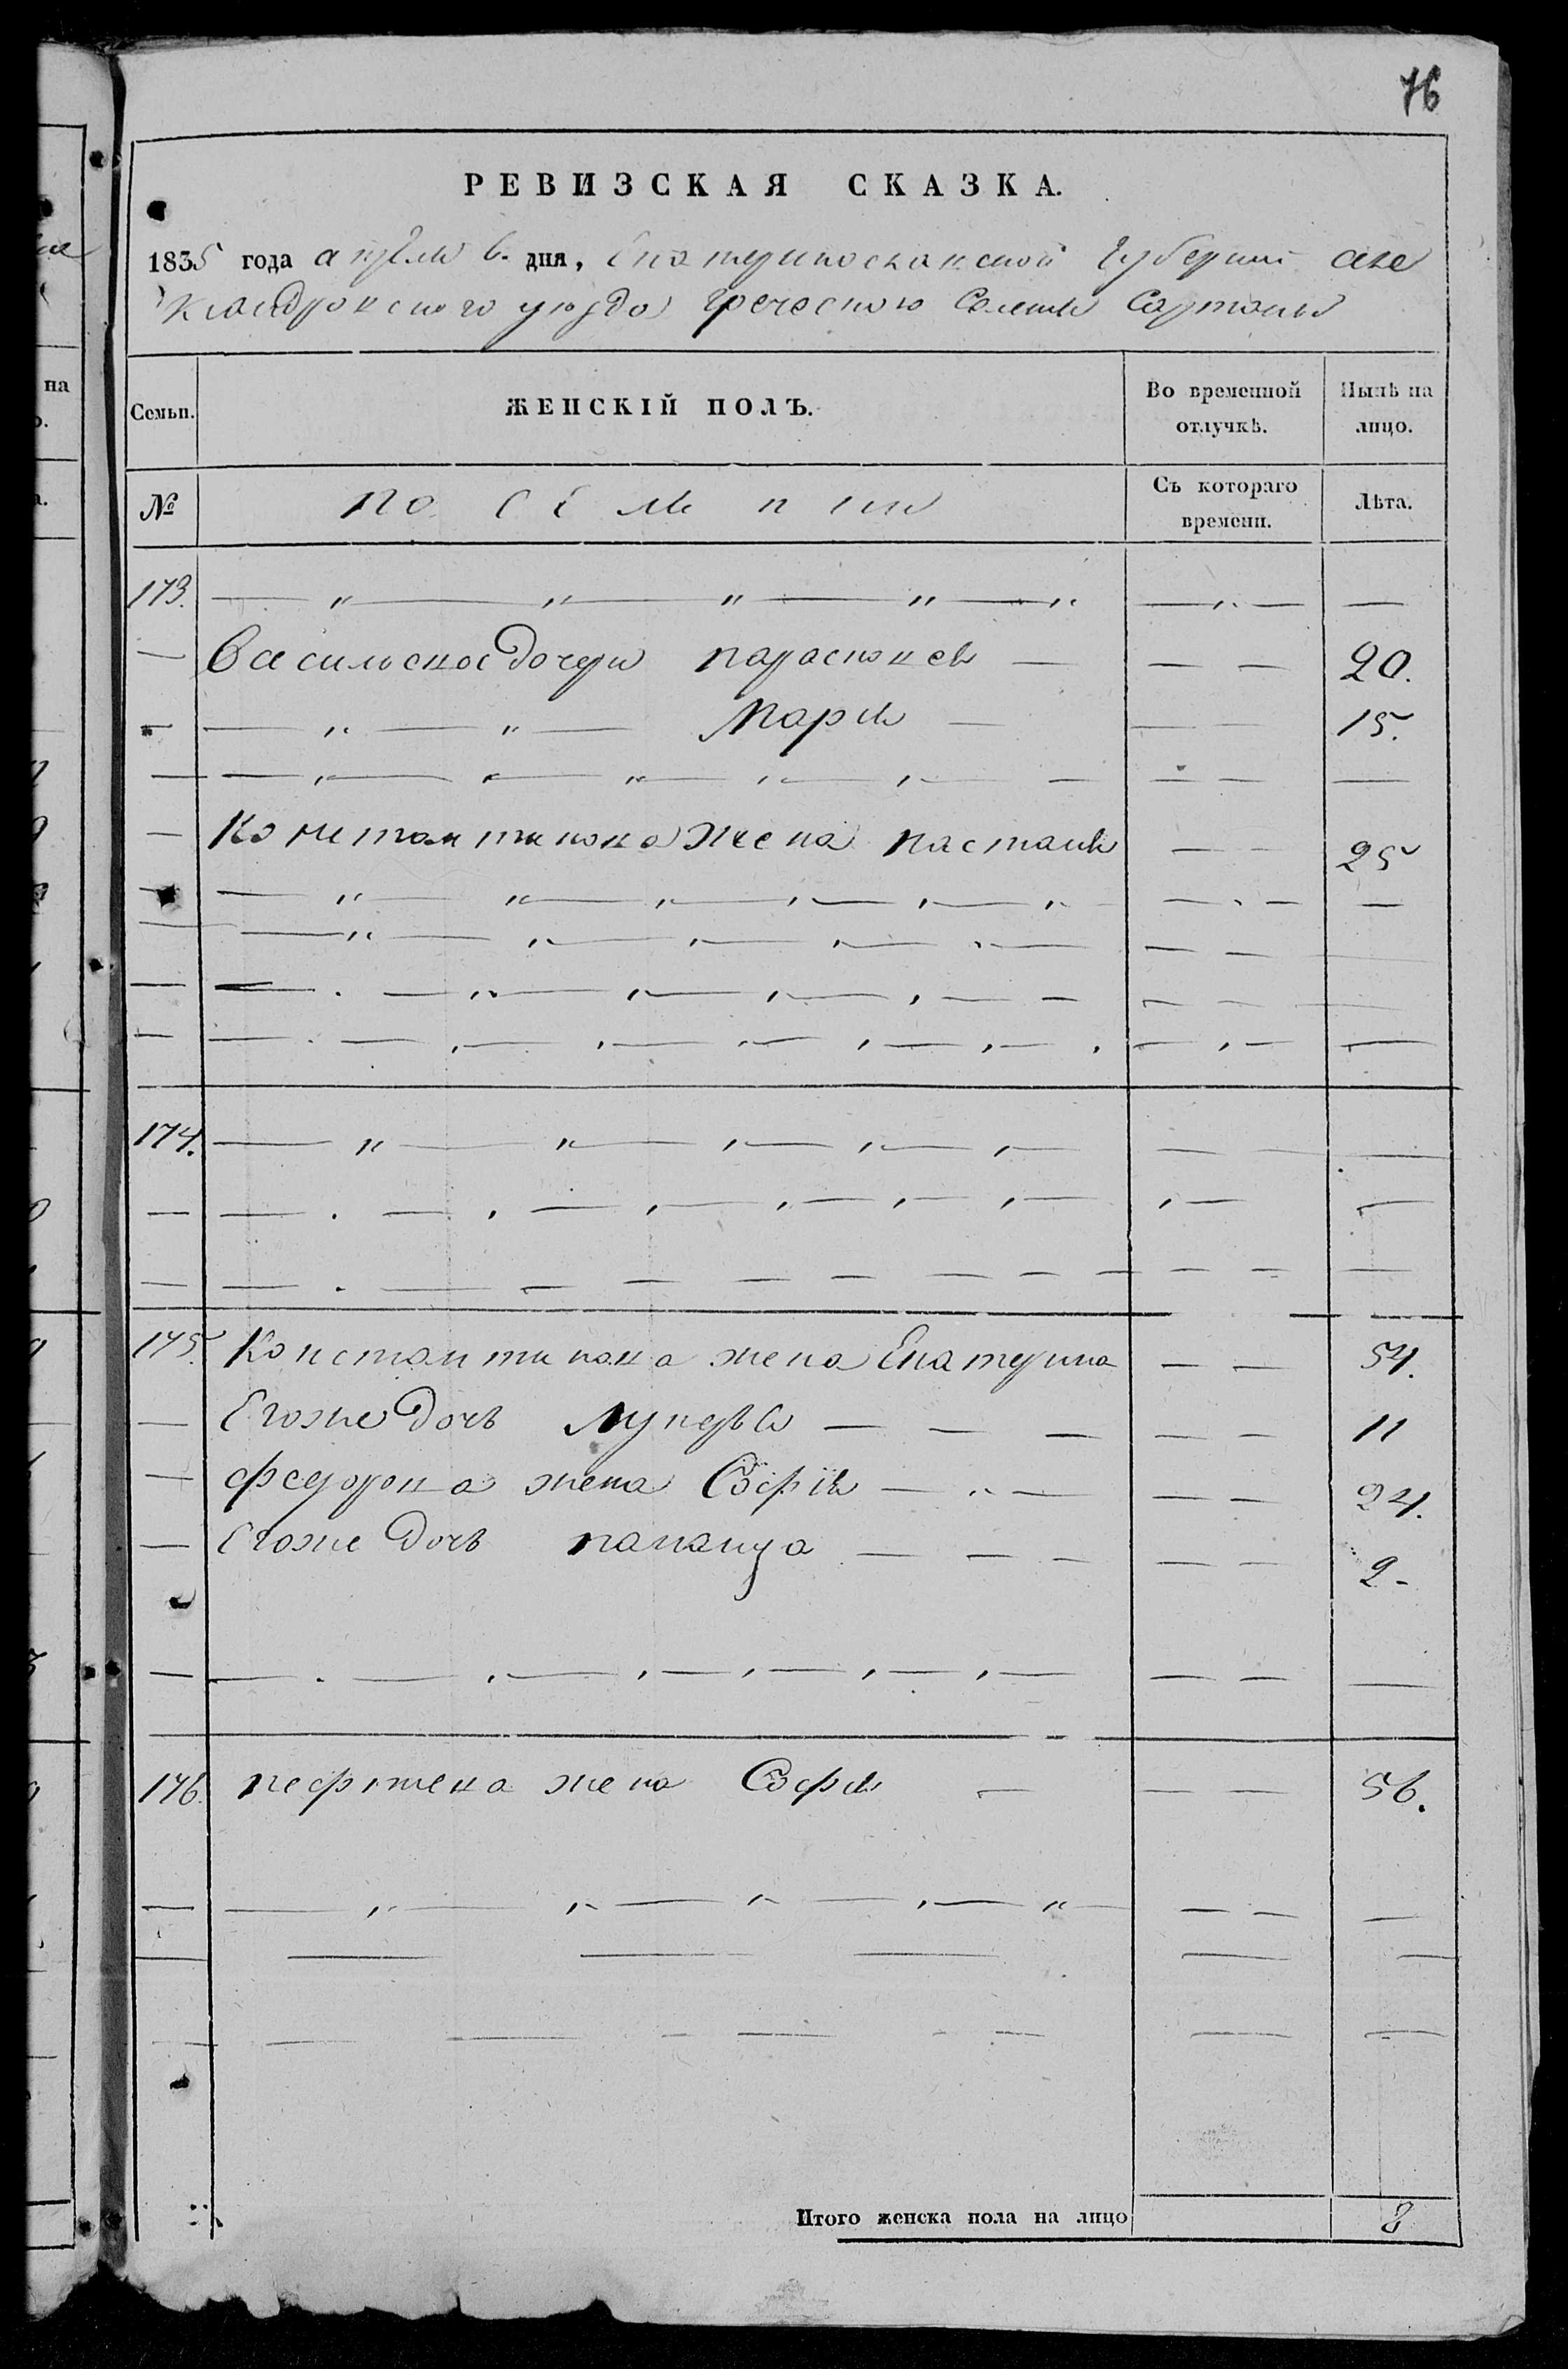 76
РЕВИЗСКАЯ СКАЗКА.
1835 года апреля 6. дня, Екатеринославской Губернии Але
ксандровского уезда греческого Селения Сартаны
Семьи. ЖЕНСКІЙ ПОЛЪ. Во временной отлучкѣ. Нынѣ на лицо.
№ Съ котораго времени. Лѣта.
173.
Васильевы Дочери параскевия 20.
Мария 15.
Константинова Жена настасия 25
174.
175. Константинова жена Екатерина 54.
Егоже Дочь Лукерья 11
Федорова жена София 24.
Егоже Дочь 2
176. жена София 56.
Итого женска пола на лицо 8